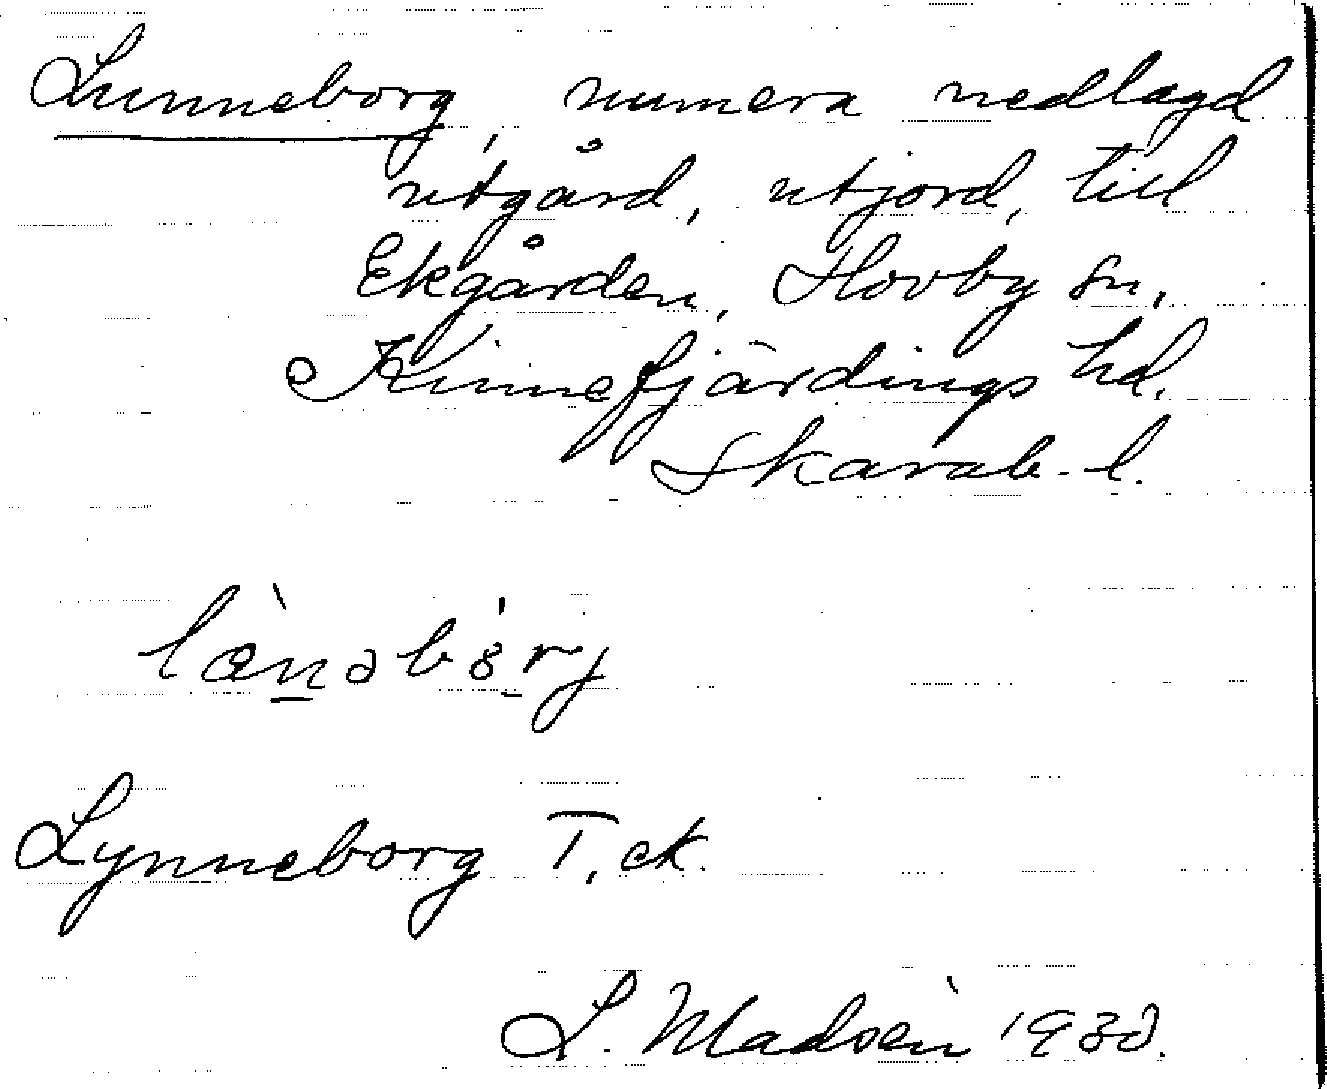 Lunneborg, numera nedlagd
utgård, utjord, till
Ekgården, Hovby sn,
Kinnefjärdings hd.
Skarab. l.
Lynneborg T. ek.
L. Madsèn 1930.